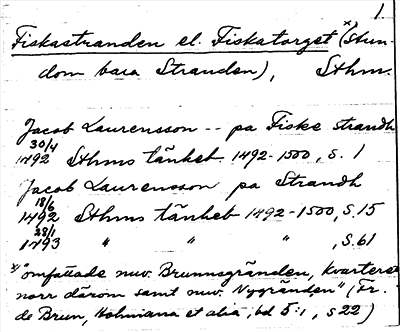 1
Fiskastranden el. Fiskatorget x) (Stun-
dom bara Stranden), Sthm.
Jacob Laurensson -- pa Fiske strandh
30/4
1492 Sthms tänkeb. 1492-1500, s. 1
Jacob Laurensson pa Strandh
18/6
1492 Sthms tänkeb. 1492-1500, s. 15
28/1
1493 " " " , s. 61
x) "omfattade nuv. Brunnsgränden, kvarteret
norr därom samt nuv. Nygränden" (Fr.
de Brun, Holmiana et alia, bd 5:1, s 22)